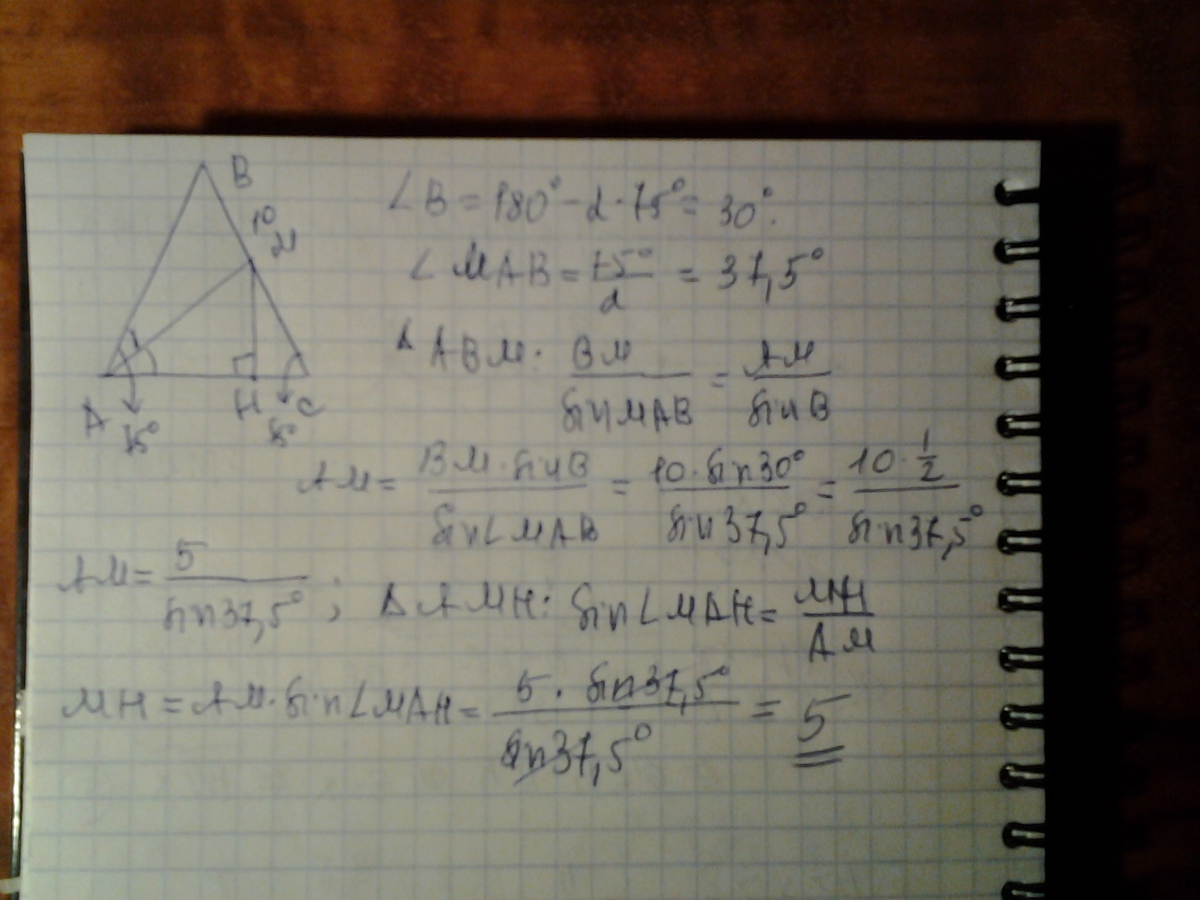 B
10
M
A
H
C
75°
75°
∠B = 180° - 2·75° = 30°.
∠MAB = 75°/2 = 37,5°
Δ ABM: BM/sin MAB = AM/sin B
AM = BM·sin B/sin∠MAB = 10·sin30°/sin37,5° = 10·1/2/sin37,5°
AM = 5/sin37,5° ; Δ AMH: sin∠MAH = MH/AM
MH = AM·sin∠MAH = 5·sin37,5°/sin37,5° = 5